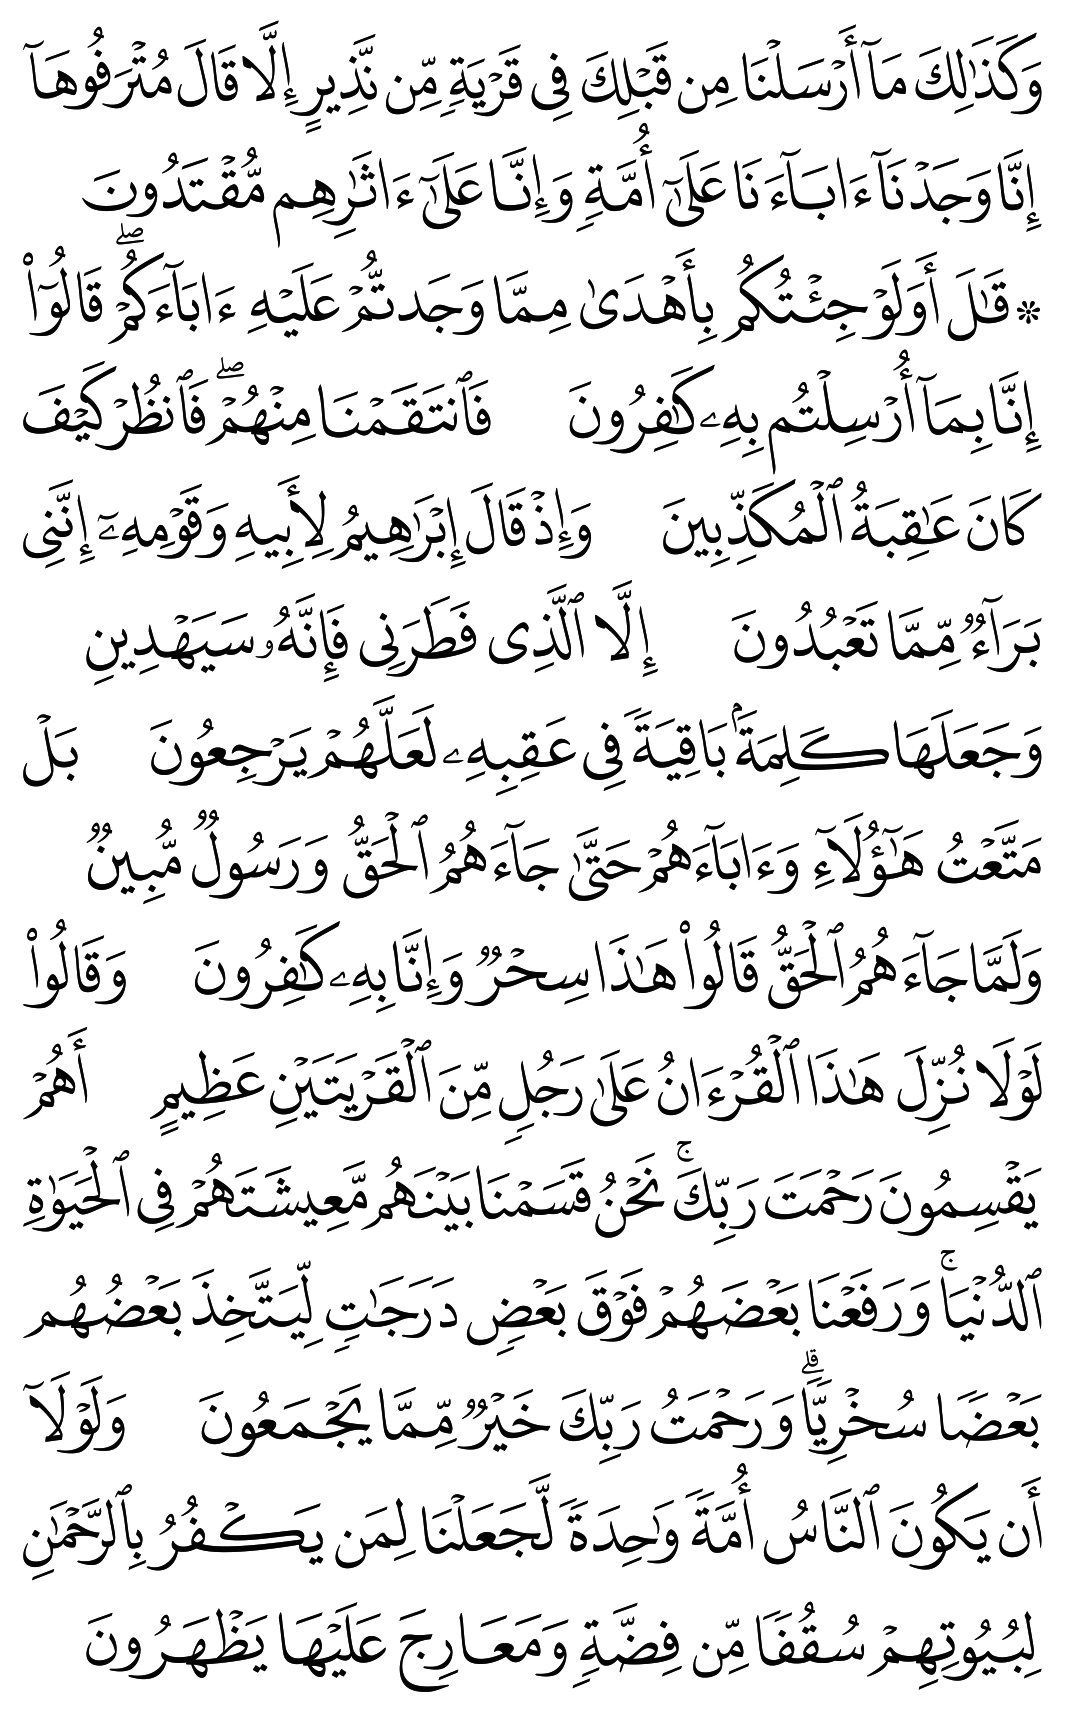 وَكَذَٰلِكَ مَآ أَرْسَلْنَا مِن قَبْلِكَ فِى قَرْيَةٍ مِّن نَّذِيرٍ إِلَّا قَالَ مُتْرَفُوهَآ
إِنَّا وَجَدْنَآ ءَابَآءَنَا عَلَىٰٓ أُمَّةٍ وَإِنَّا عَلَىٰٓ ءَاثَٰرِهِم مُّقْتَدُونَ
۞ قَٰلَ أَوَلَوْ جِئْتُكُم بِأَهْدَىٰ مِمَّا وَجَدتُّمْ عَلَيْهِ ءَابَآءَكُمْ ۖ قَالُوٓا۟
إِنَّا بِمَآ أُرْسِلْتُم بِهِۦ كَٰفِرُونَ فَٱنتَقَمْنَا مِنْهُمْ ۖ فَٱنظُرْ كَيْفَ
كَانَ عَٰقِبَةُ ٱلْمُكَذِّبِينَ وَإِذْ قَالَ إِبْرَٰهِيمُ لِأَبِيهِ وَقَوْمِهِۦٓ إِنَّنِى
بَرَآءٌ مِّمَّا تَعْبُدُونَ إِلَّا ٱلَّذِى فَطَرَنِى فَإِنَّهُۥ سَيَهْدِينِ
وَجَعَلَهَا كَلِمَةًۢ بَاقِيَةً فِى عَقِبِهِۦ لَعَلَّهُمْ يَرْجِعُونَ بَلْ
مَتَّعْتُ هَٰٓؤُلَآءِ وَءَابَآءَهُمْ حَتَّىٰ جَآءَهُمُ ٱلْحَقُّ وَرَسُولٌ مُّبِينٌ
وَلَمَّا جَآءَهُمُ ٱلْحَقُّ قَالُوا۟ هَٰذَا سِحْرٌ وَإِنَّا بِهِۦ كَٰفِرُونَ وَقَالُوا۟
لَوْلَا نُزِّلَ هَٰذَا ٱلْقُرْءَانُ عَلَىٰ رَجُلٍ مِّنَ ٱلْقَرْيَتَيْنِ عَظِيمٍ أَهُمْ
يَقْسِمُونَ رَحْمَتَ رَبِّكَ ۚ نَحْنُ قَسَمْنَا بَيْنَهُم مَّعِيشَتَهُمْ فِى ٱلْحَيَوٰةِ
ٱلدُّنْيَا ۚ وَرَفَعْنَا بَعْضَهُمْ فَوْقَ بَعْضٍ دَرَجَٰتٍ لِّيَتَّخِذَ بَعْضُهُم
بَعْضًا سُخْرِيًّا ۗ وَرَحْمَتُ رَبِّكَ خَيْرٌ مِّمَّا يَجْمَعُونَ وَلَوْلَآ
أَن يَكُونَ ٱلنَّاسُ أُمَّةً وَٰحِدَةً لَّجَعَلْنَا لِمَن يَكْفُرُ بِٱلرَّحْمَٰنِ
لِبُيُوتِهِمْ سُقُفًا مِّن فِضَّةٍ وَمَعَارِجَ عَلَيْهَا يَظْهَرُونَ